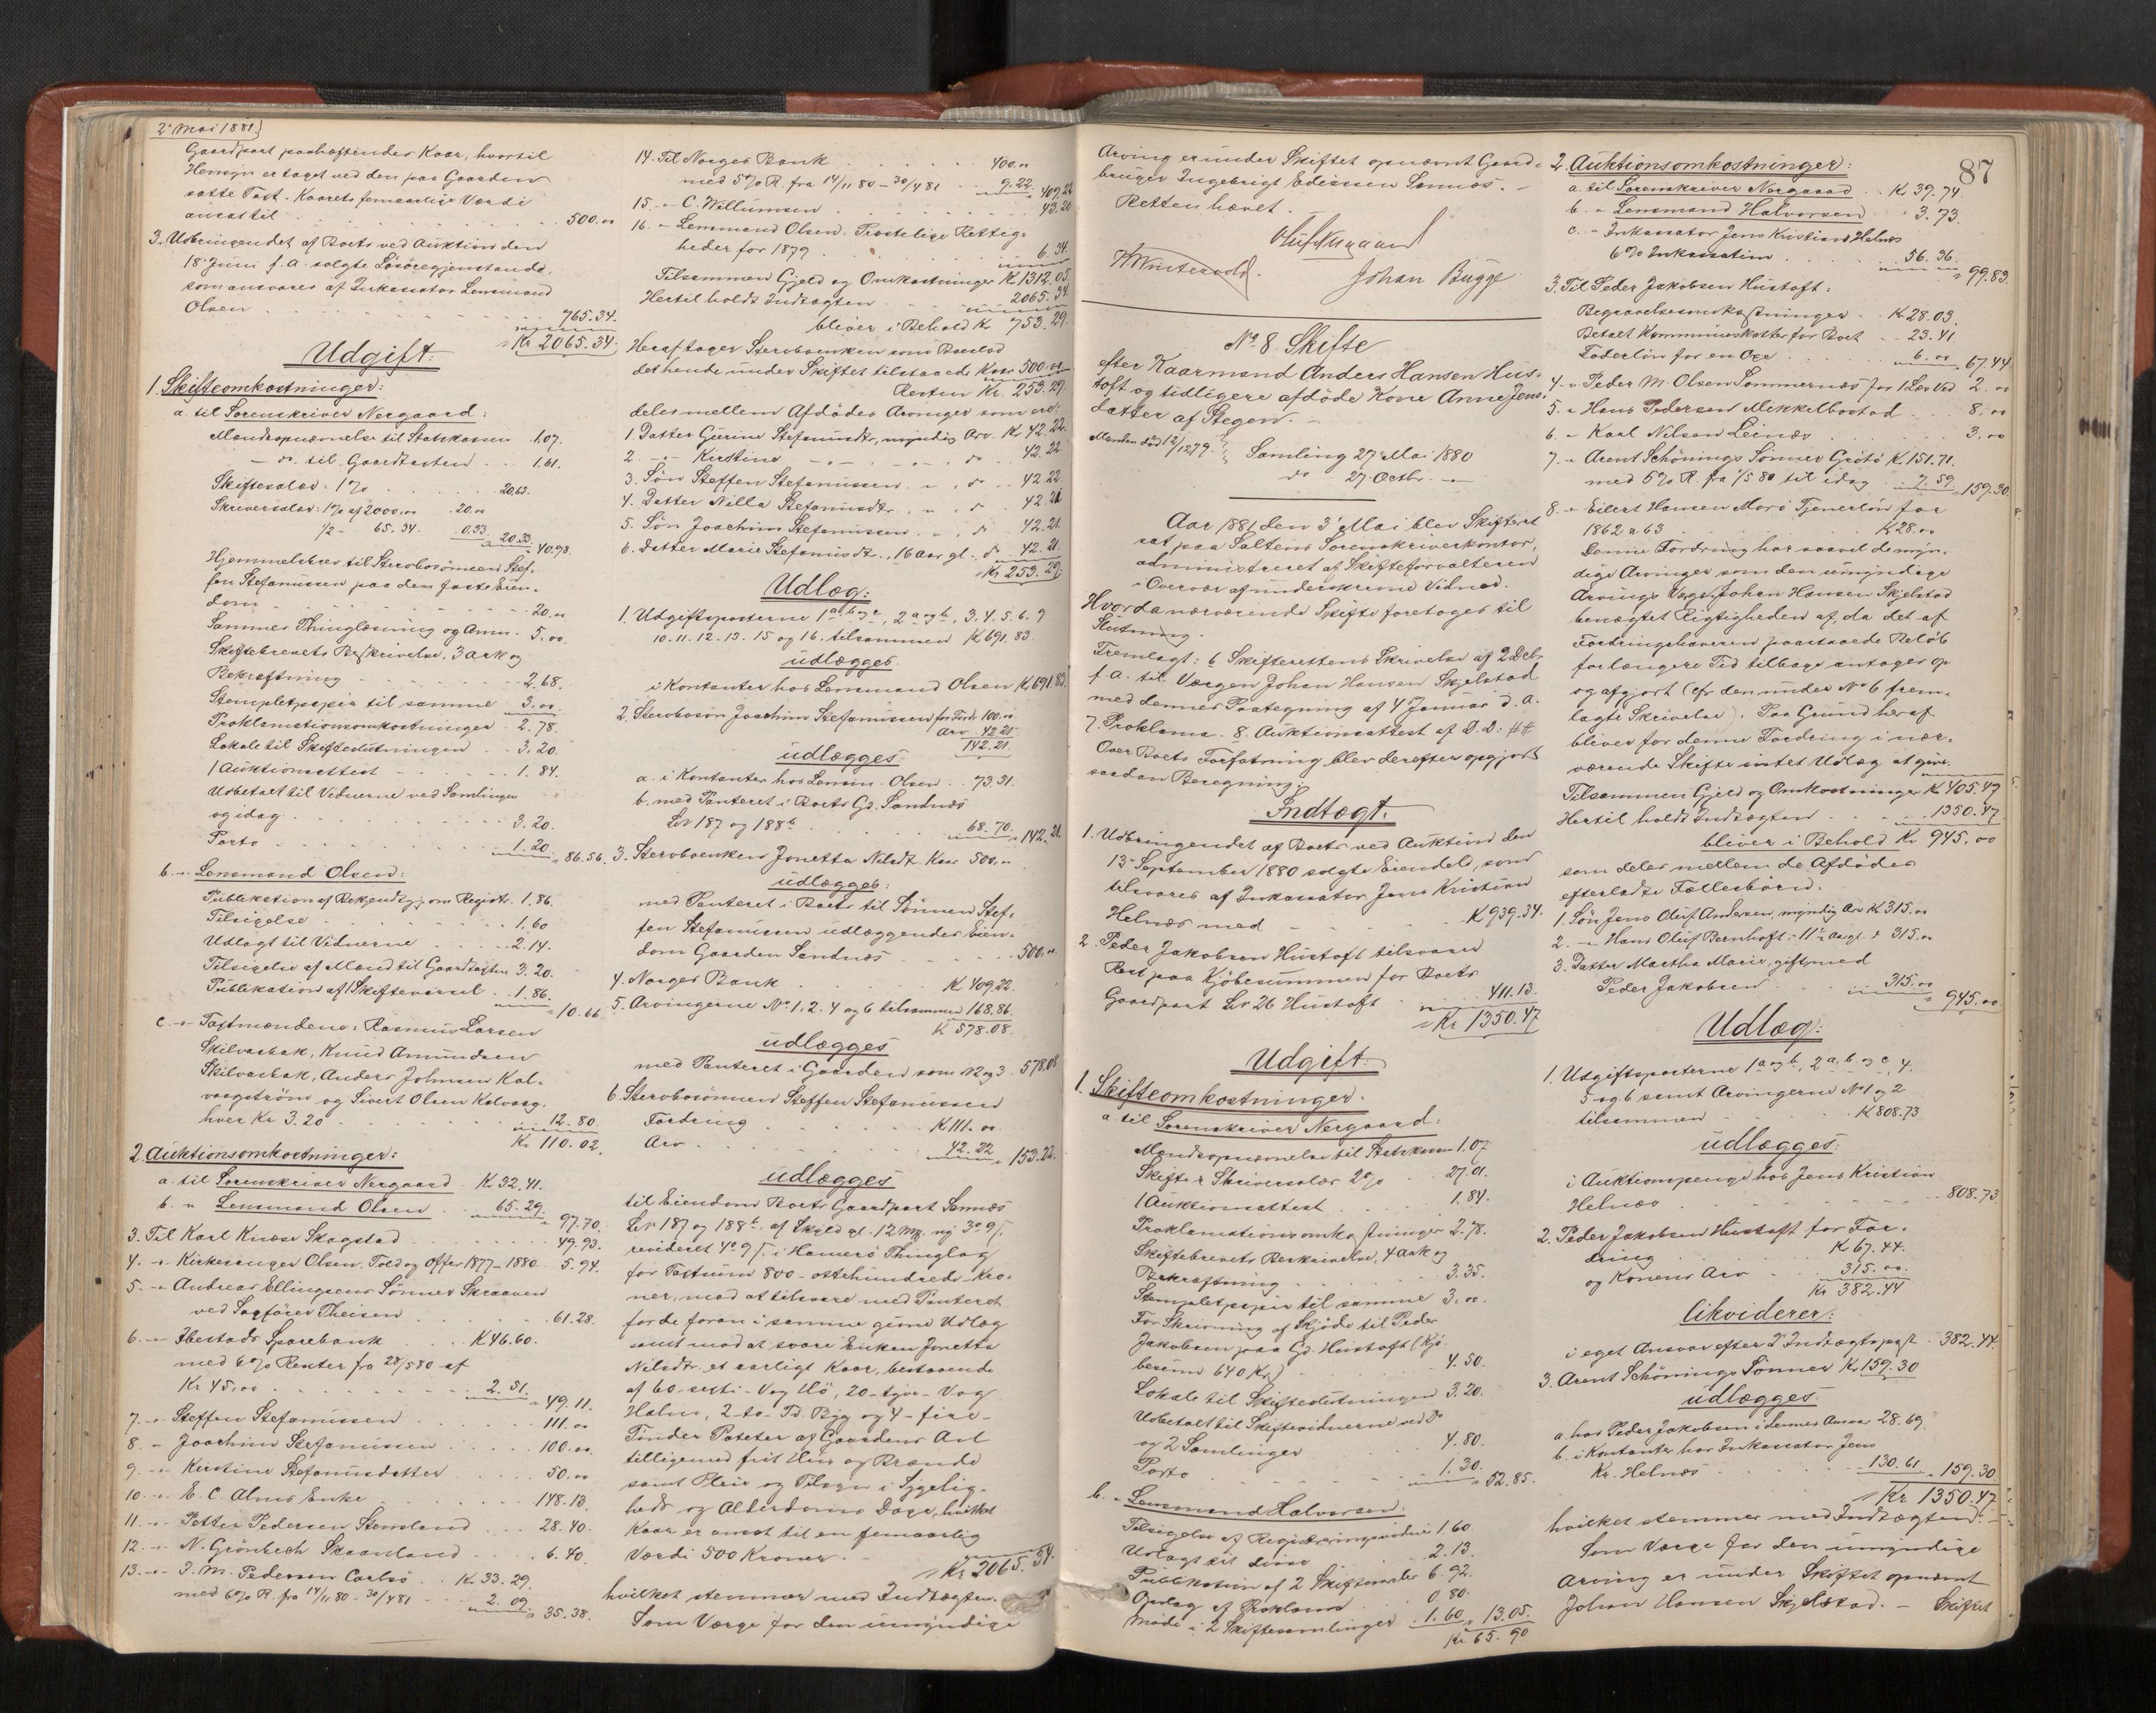 2' Mai 1881.
Gaardpart paahæftendes Kaar, hvortil
Hensyn er taget ved den paa Gaarden
satte Taxt. Kaarets femaarlige Værdi
ansat til 500.00
3. Udbringendet af Boets ved Auktion den
18' Juni f. A. solgte Løsøregjenstande,
som ansvares af Inkassator Lensmand
Olsen 765.34.
Kr 2065.34.
Udgift:
1. Skifteomkostninger:
a. til Sorenskriver Nergaard:
Mandsopnævnelse til Statskassen 1.07.
— do. til Gaardtaxten 1.61.
Skiftesalær. 1% 20.63.
Skriversalær: 1% af 2000.00 20.00
1/2 - 65.34. 0.33 20.33. 40.98.
Hjemmelsbrev til Stervbosønnen Stef-
fen Stefanussen paa den faste Eien-
dom 20.00
Sammes Thinglæsning og Anm. 5.00
Skiftebrevets Beskrivelse. 3 ark og
Bekræftning 2.68.
Stempletpapir til samme 3.00.
Proklamationsomkostninger 2.78.
Lokale til Skifteslutningen 3.20.
1 Auktionsattest 1.84.
Udbetalt til Vidnerne ved Samlingen
og idag 3.20.
Porto 1.20. 86.56.
b. - Lensmand Olsen:
Publikation af Bekjendtgj. om Registr. 1.86.
Tilsigelse 1.60
Udlagt til Vidnerne 2.14.
Tilsigelse af Mænd til Gaardtaxten 3.20.
Publikation af 1 Skiftevarsel 1.86. 10.66
c. - Taxtmændene: Rasmus Larsen
Skilvasbak, Knud Amundsen
Skilvasbak, Anders Johnsen Kal-
vaagstrøm og Sivert Olsen Kalvaag.
hver Kr 3.20 12.80.
Kr 110.02.
2. Auktionsomkostninger:
a. til Sorenskriver Nergaard K 32.41.
b. " Lensmand Olsen 65.29. 97.70.
3. Til Karl Knæse Skagstad 49.93.
4. - Kirkesanger Olsen, Told og Offer 1877-1880 5.94.
5. - Andreas Ellingsens Sønner Skraaven
ved Sagfører Theisen 61.28.
6. - Ibestads Sparebank K 46.60.
med 6% Renter fra 28/5 80 af
Kr 45.00 2.51. 49.11.
7. - Steffen Stefanussen 111.00
8. - Joachim Stefanussen 100.00.
9. - Kirstine Stefanusdatter 50.00
10. - E. C. Alms Enke 148.13.
11. - Petter Pedersen Stensland 28.40.
12. - N. Grönbech Skaanland 6.40.
13. - J. M. Pedersen Carlsö Kr 33.29.
med 6% R. fra 14/11 80 - 30/4 81 2.09. 35.38.
14. Til Norges Bank 400.00
med 5% R. fra 14/11 80 - 30/4 81 9.22. 409.22
15. - C. Willumsen 43.20
16. - Lensmand Olsen. Prostelige Rettig-
heder for 1879 6.34.
Tilsammen Gjeld og Omkostninger Kr 1312.05.
Hertil holdt Indtægten 2065.34
bliver i Behold Kr 753.29.
Heraf tager Stervboenken som Boeslod
det hende under Skiftet tilstaaede Kaar 500.00
Resten Kr. 253.29.
deles mellem Afdødes Arvinger som er:
1. Datter Gurine Stefanusdtr, myndig Arv. Kr 42.22.
2. - Kirstine - - do 42.22.
3. Søn Steffen Stefanussen - do 42.22
4. Datter Nilla Stefanusdtr - do 42.21
5. Søn Joachim Stefanussen - do 42.21.
6. Datter Marie Stefanusdtr, 16 aar gl. do 42.21.
Kr 253.29.
Udlæg:
1. Udgiftsposterne 1 a, b og c, 2 a og b, 3. 4. 5. 6. 9
10. 11. 12. 13. 15 og 16. tilsammen K 691.83.
udlægges
i Kontanter hos Lensmand Olsen K 691.83.
2. Stervbosøn Joachim Stefanussen for Fordr 100.00
Arv 42.21
142.21.
udlægges
a. i Kontanter hos Lensm. Olsen 73.51.
b. med Panteret i Boets Gd. Sandnæs
Lnr 187 og 188b 68.70. 142.21.
3. Stervboenken Jonetta Nilsdt. Kaar 500.00
udlægges:
med Panteret i Boets til Sønnen Stef-
fen Stefanussen udlæggendes Eien-
dom Gaarden Sandnæs 500.00.
4. Norges Bank K 409.22.
5. Arvingerne No 1. 2. 4 og 6 tilsammen 168.86.
K 578.08.
udlægges
med Panteret i Gaarden som No 2 og 3 578.08
6. Stervbosønnen Steffen Stefanussen
Fordring K 111.00
Arv 42.22 153.22.
udlægges
til Eiendom Boets Gaardpart Sannæs
Lnr 187 og 188b. af Skyld gl. 12 Mk. ny 3 o 9 ſ.
revideret 4 o 9 ſ. i Hamerö Thinglag
for Taxtsum 800 - ottehundrede - Kro-
ner, mod at tilsvare med Panteret
for de foran i samme givne Udlæg
samt mod at svare Enken Jonetta
Nilsdtr et aarligt Kaar, bestaaende
af 60 - sexti - Vog Hö, 20 - tyve - Vog
Halm, 2 - to - Td. Byg og 4 - fire -
Tønder Poteter af Gaardens Avl
tilligemed frit Hus og Brænde
samt Pleie og Tilsyn i Sygelig-
heds og Alderdoms Dage, hvilket
Kaar er ansat til en femaarlig
Værdi 500 Kroner.
Kr 2065.34.
hvilket stemmer med Indtægten.
Som Værge for den umyndige
87
Arving er under Skiftet opnævnt Gaard-
bruger Ingebrigt Ediassen Sannæs. -
Retten hævet.
Johan Bugge
No 8 Skifte
efter Kaarmand Anders Hansen Hus-
toft og tidligere afdøde Kone Anne Jens-
datter af Stegen.
Manden død 12/12 79.
Samling 27' Mai 1880
do 27. Octbr. -
Aar 1881 den 3' Mai blev Skifteret
sat paa Saltens Sorenskriverkontor,
administreret af Skifteforvalteren
i Overvær af underskrevne Vidner.
Hvorda nærværende Skifte foretoges til
Slutning.
Fremlagt: 6. Skifterettens Skrivelse af 2 Decbr
f. A. til Værgen Johan Hansen Skjelstad
med dennes Paategning af 4' Januar d. A.
7. Proklama. 8. Auktionsattest af D. D: ##
Over Boets Forfatning blev derefter opgjort
saadan Beregning:
Indtægt.
1. Udbringendet af Boets ved Auktion den
13' September 1880 solgte Eiendele, som
tilsvares af Inkassator Jens Kristian
Helnæs med K 939.34.
2. Peder Jakobsen Hustoft tilsvarer
Rest paa Kjøbesummen for Boets
Gaardpart Lnr 26 Hustoft 411.13.
Kr 1350.47
Udgift.
1. Skifteomkostninger.
a. til Sorenskriver Nergaard:
Mandsopnævnelse til Statskassen 1.07
Skifte & Skriversalær 2% 27.01.
1 Auktionsattest 1.84.
Proklamationsomkostninger 2.78.
Skiftebrevets Beskrivelse, 4 ark og
Bekræftning 3.35.
Stempletpapir til samme 3.00.
For Skrivning af Skjøde til Peder
Jakobsen paa Gd. Hustoft (Kjö-
besum 640 Kr.) 4.50.
Lokale til Skifteslutningen 3.20.
Udbetalt til Skiftevidnerne ved Do
og 2 Samlinger 4.80.
Porto 1.30. 52.85.
b. - Lensmand Halvorsen:
Tilsigelse af Registreringsvidner 1.60.
Udlagt til disse 2.13.
Publikation af 2 Skiftevarsler 6.92.
Opslag af Proklama 0.80.
Møde i 2 Skiftesamlinger 1.60 13.05.
Kr 65.90
2. Auktionsomkostninger:
a. til Sorenskriver Nergaard Kr 39.74.
b. - Lensmand Halvorsen 3.73.
c. - Inkassator Jens Kristian Helnæs
6% Inkassation 56.36. 99.83.
3. Til Peder Jakobsen Hustoft:
Begravelsesomkostninger K 28.03.
Betalt Kommuneskatter for Boet 23.41.
Foderløn for en Oxe 6.00 67.44
4. - Peder M. Olsen Sommernæs for 1 Læs Ved 2.00
5. - Hans Pedersen Mikkelbostad 8.00
6. - Karl Nilsen Leinæs 3.00
7. - Arent Schönings Sønner Grötö K 151.71.
med 5% R. fra 1/5 80 til idag 7.59. 159.30.
8. - Eilert Hansen Morö Tjenerløn for
1862 & 63 K 28.00
Denne Fordring har saavel de myn-
dige Arvinger som den umyndige
Arvings Værge Johan Hansen Skjelstad
benægtet Rigtigheden af, da det af
Fordringshaveren paastaaede Beløb
for længere Tid tilbage antages op
og afgjort (cfr den under No 6 frem-
lagte Skrivelse). Paa Grund heraf
bliver for denne Fordring i nær-
værende Skifte intet Udlæg at give.
Tilsammen Gjeld og Omkostninger K 405.47
Hertil holdt Indtægten 1350.47
bliver i Behold Kr 945.00
som deles mellem de Afdødes
efterladte Fællesbörn.
1. Søn Jens Oluf Andersen, myndig Arv Kr 315.00
2. - Hans Oluf Bernhoft - 11 1/2 Aar gl. do 315.00
3. Datter Martha Marie, gift med
Peder Jakobsen 315.00 945.00.
Udlæg:
1. Udgiftsposterne 1 a og b, 2 a, b og c, 4.
5 og 6 samt Arvingerne No 1 og 2
tilsammen K 808.73
udlægges:
i Auktionspenge hos Jens Kristian
Helnæs 808.73
2. Peder Jakobsen Hustoft for For-
dring K 67.44.
og Konens Arv 315.00.
Kr 382.44
likviderer:
i eget Ansvar efter 2' Indtægtspost 382.44.
3. Arent Schönings Sønner Kr 159.30
udlægges
a. hos Peder Jakobsen i dennes Ansvar 28.69.
b. i Kontanter hos Inkassator Jens
Kr. Helnæs 130.61 159.30
Kr 1350.47
hvilket stemmer med Indtægten. -
Som Værge for den umyndige
Arving er under Skiftet opnævnt
Johan Hansen Skjelstad. - Skiftet